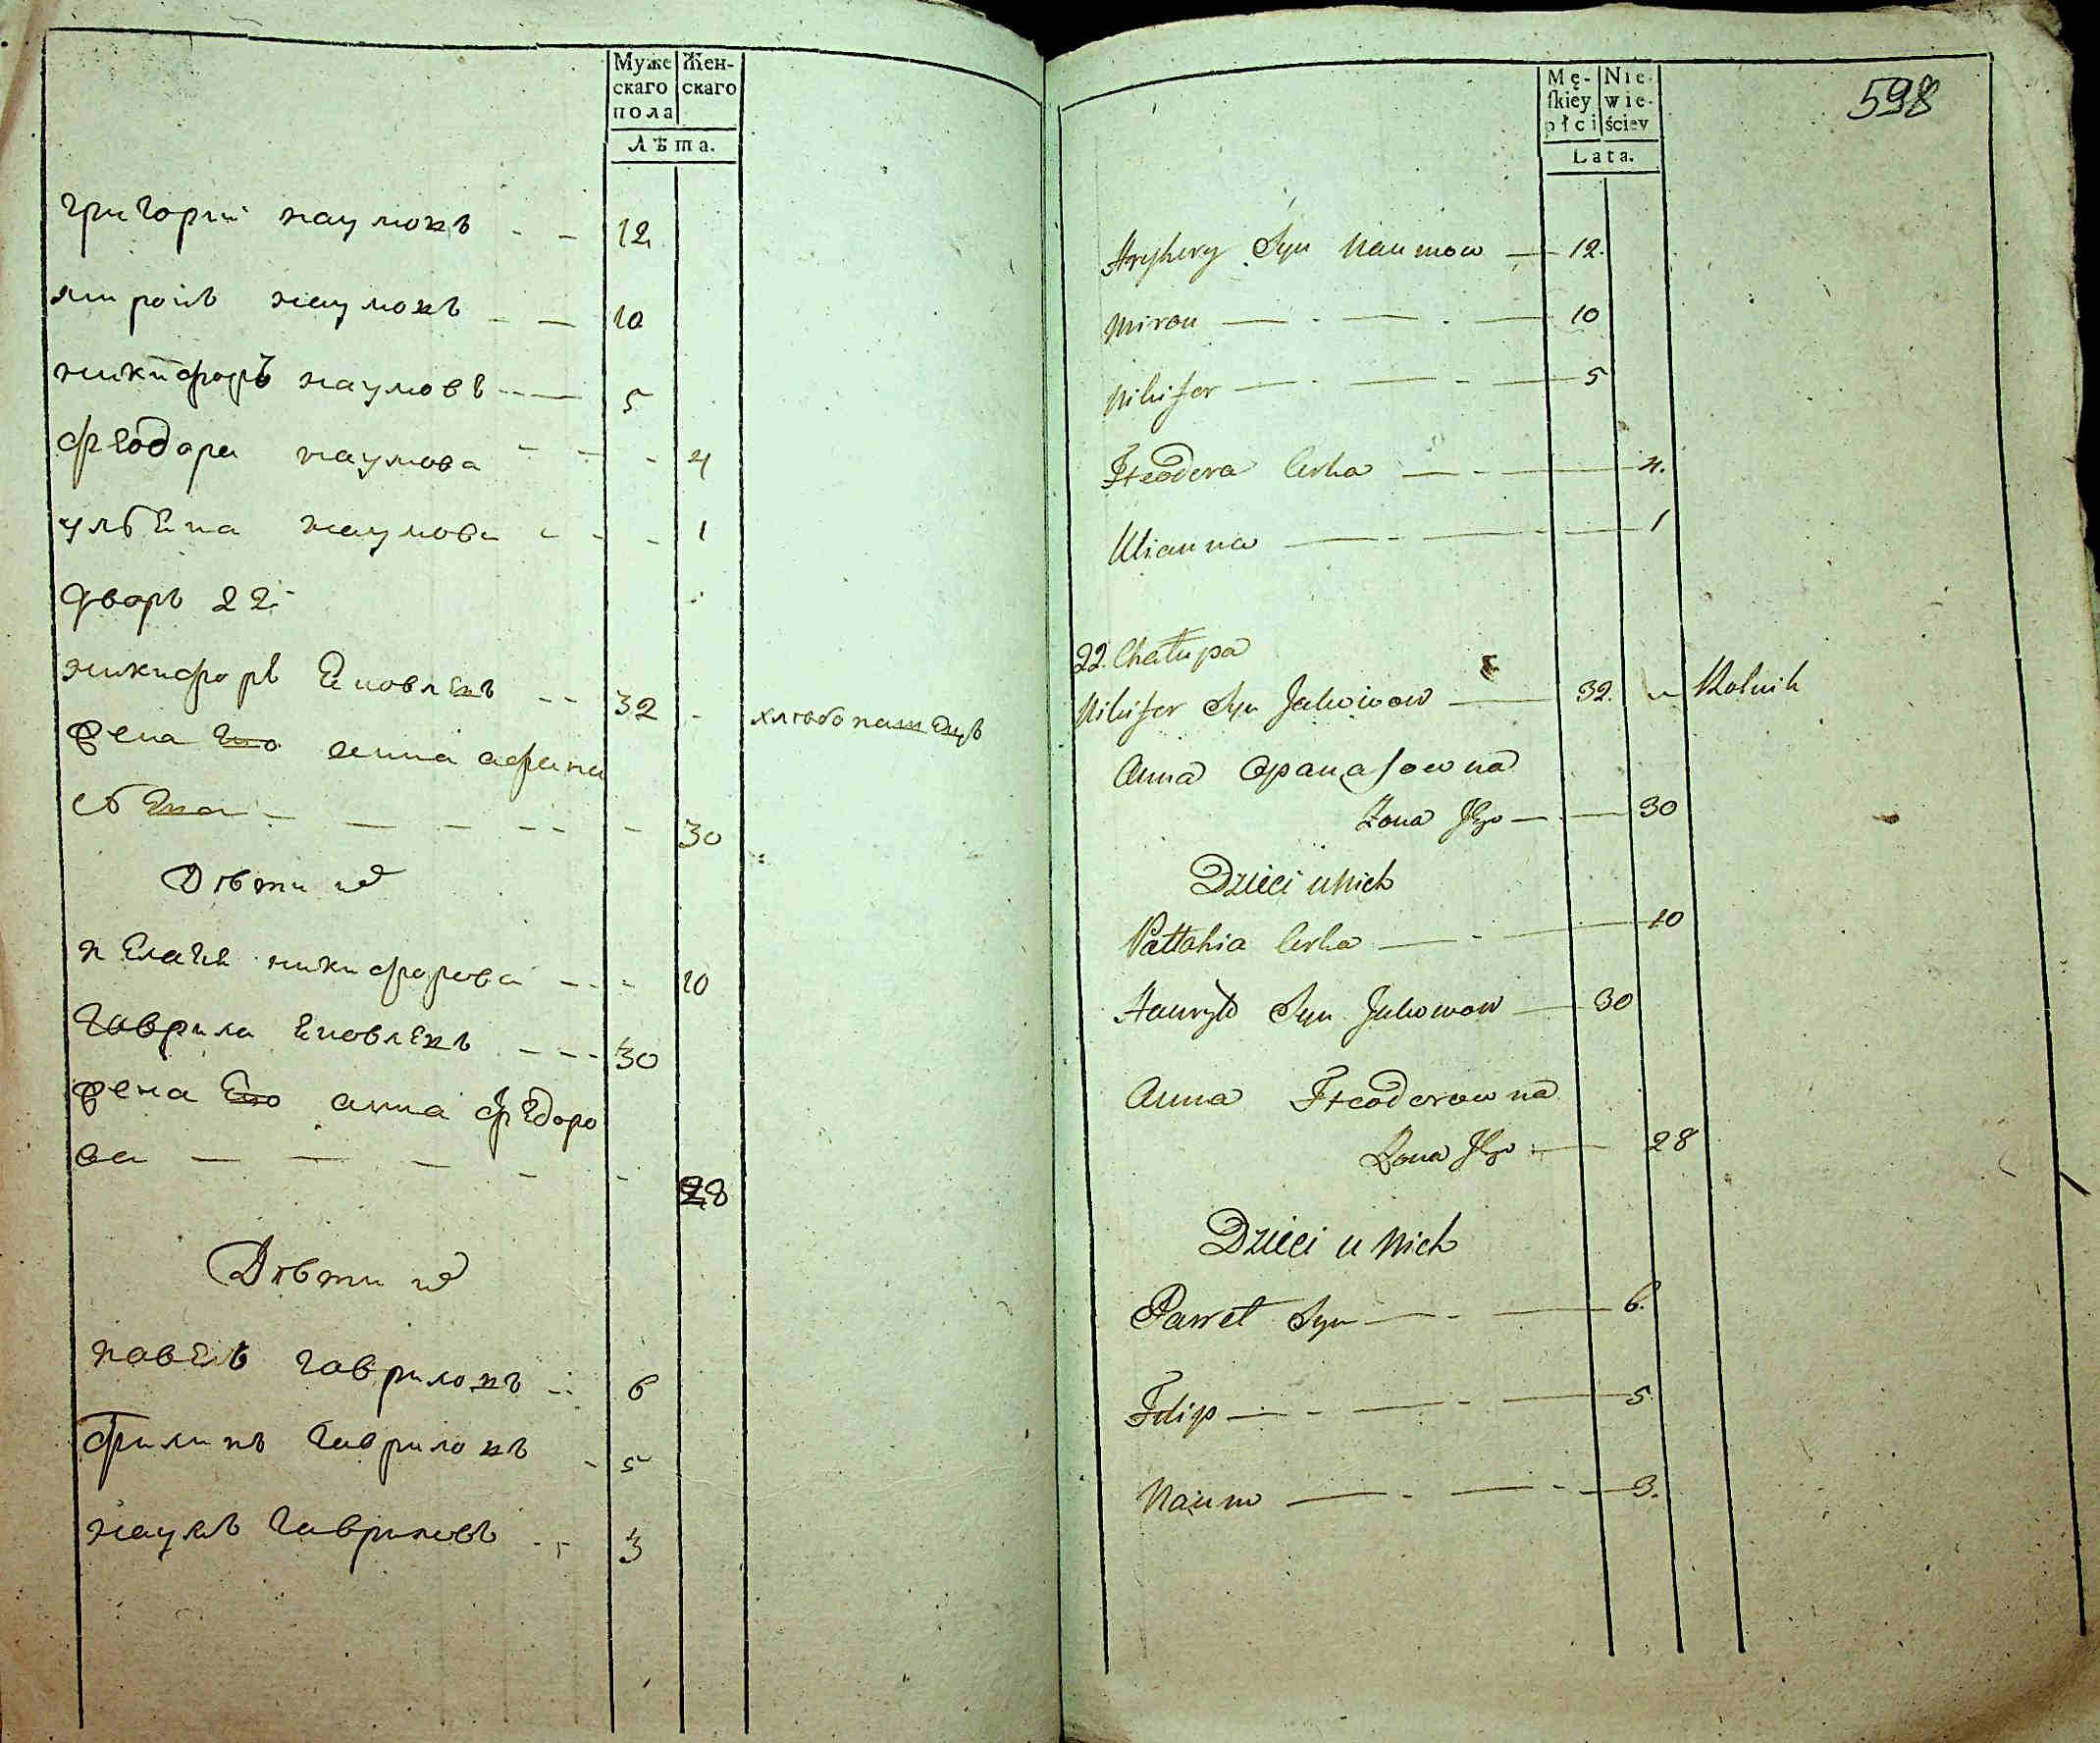 Муже Жен-
скаго скаго
пола
Лѣта.
григорий наумовъ - - 12
миронъ наумовъ - — 10
никифоръ наумовъ - — 5
феодора наумова - - - 4
ульяна наумова - - - 1
дворъ 22
никифоръ Яковлевъ - - 32 - хлебопашецъ
жена Его анна афана
сьева - — - - - - 30
Дѣти их
пелагия никифорова - - - 10
гаврила Яковлевъ - - - 30
жена Его анна феодоро
ва — — — - - 28
Дѣти их
павелъ гавриловъ - - 6
филипъ гавриловъ - 5
наумъ гавриловъ - - 3
598
Mę- Nie-
ſkiey wie-
płci ściey
Lata.
Hryhory Syn Naumow — 12.
Miron — - — - — 10
Nikifor — - — - — 5
Fteodora Corka — - — 4.
Ulianna — - — - — 1
22. Chałupa
Nikifor Syn Jakowow — 32. Rolnik
Anna Opanaſowna
Zona Jego — - — 30
Dzieci u Nich
Pałłahia Corka — - — 10
Hauryło Syn Jakowow — 30
Anna Fteodorowna
Zona Jego — 28
Dzieci u Nich
Paweł Syn — - — 6.
Filip — - — - — 5
Naum — - — - — 3.